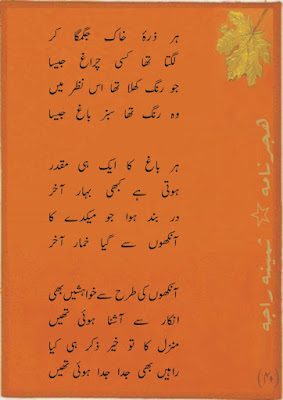 ہر ذرۂ خاک جگمگا کر
لگتا تھا کسی چراغ جیسا
جو رنگ کھلا تھا اس نظر میں
وہ رنگ تھا سبز باغ جیسا
ہر باغ کا ایک ہی مقدر
ہوتی ہے کبھی بہار آخر
در بند ہوا جو میکدے کا
آنکھوں سے گیا خمار آخر
آنکھوں کی طرح سے خواہشیں بھی
انکار سے آشنا ہوئی تھیں
منزل کا تو خیر ذکر ہی کیا
راہیں بھی جدا جدا ہوئی تھیں
ھجر نامہ ☆ ثمینہ راجہ